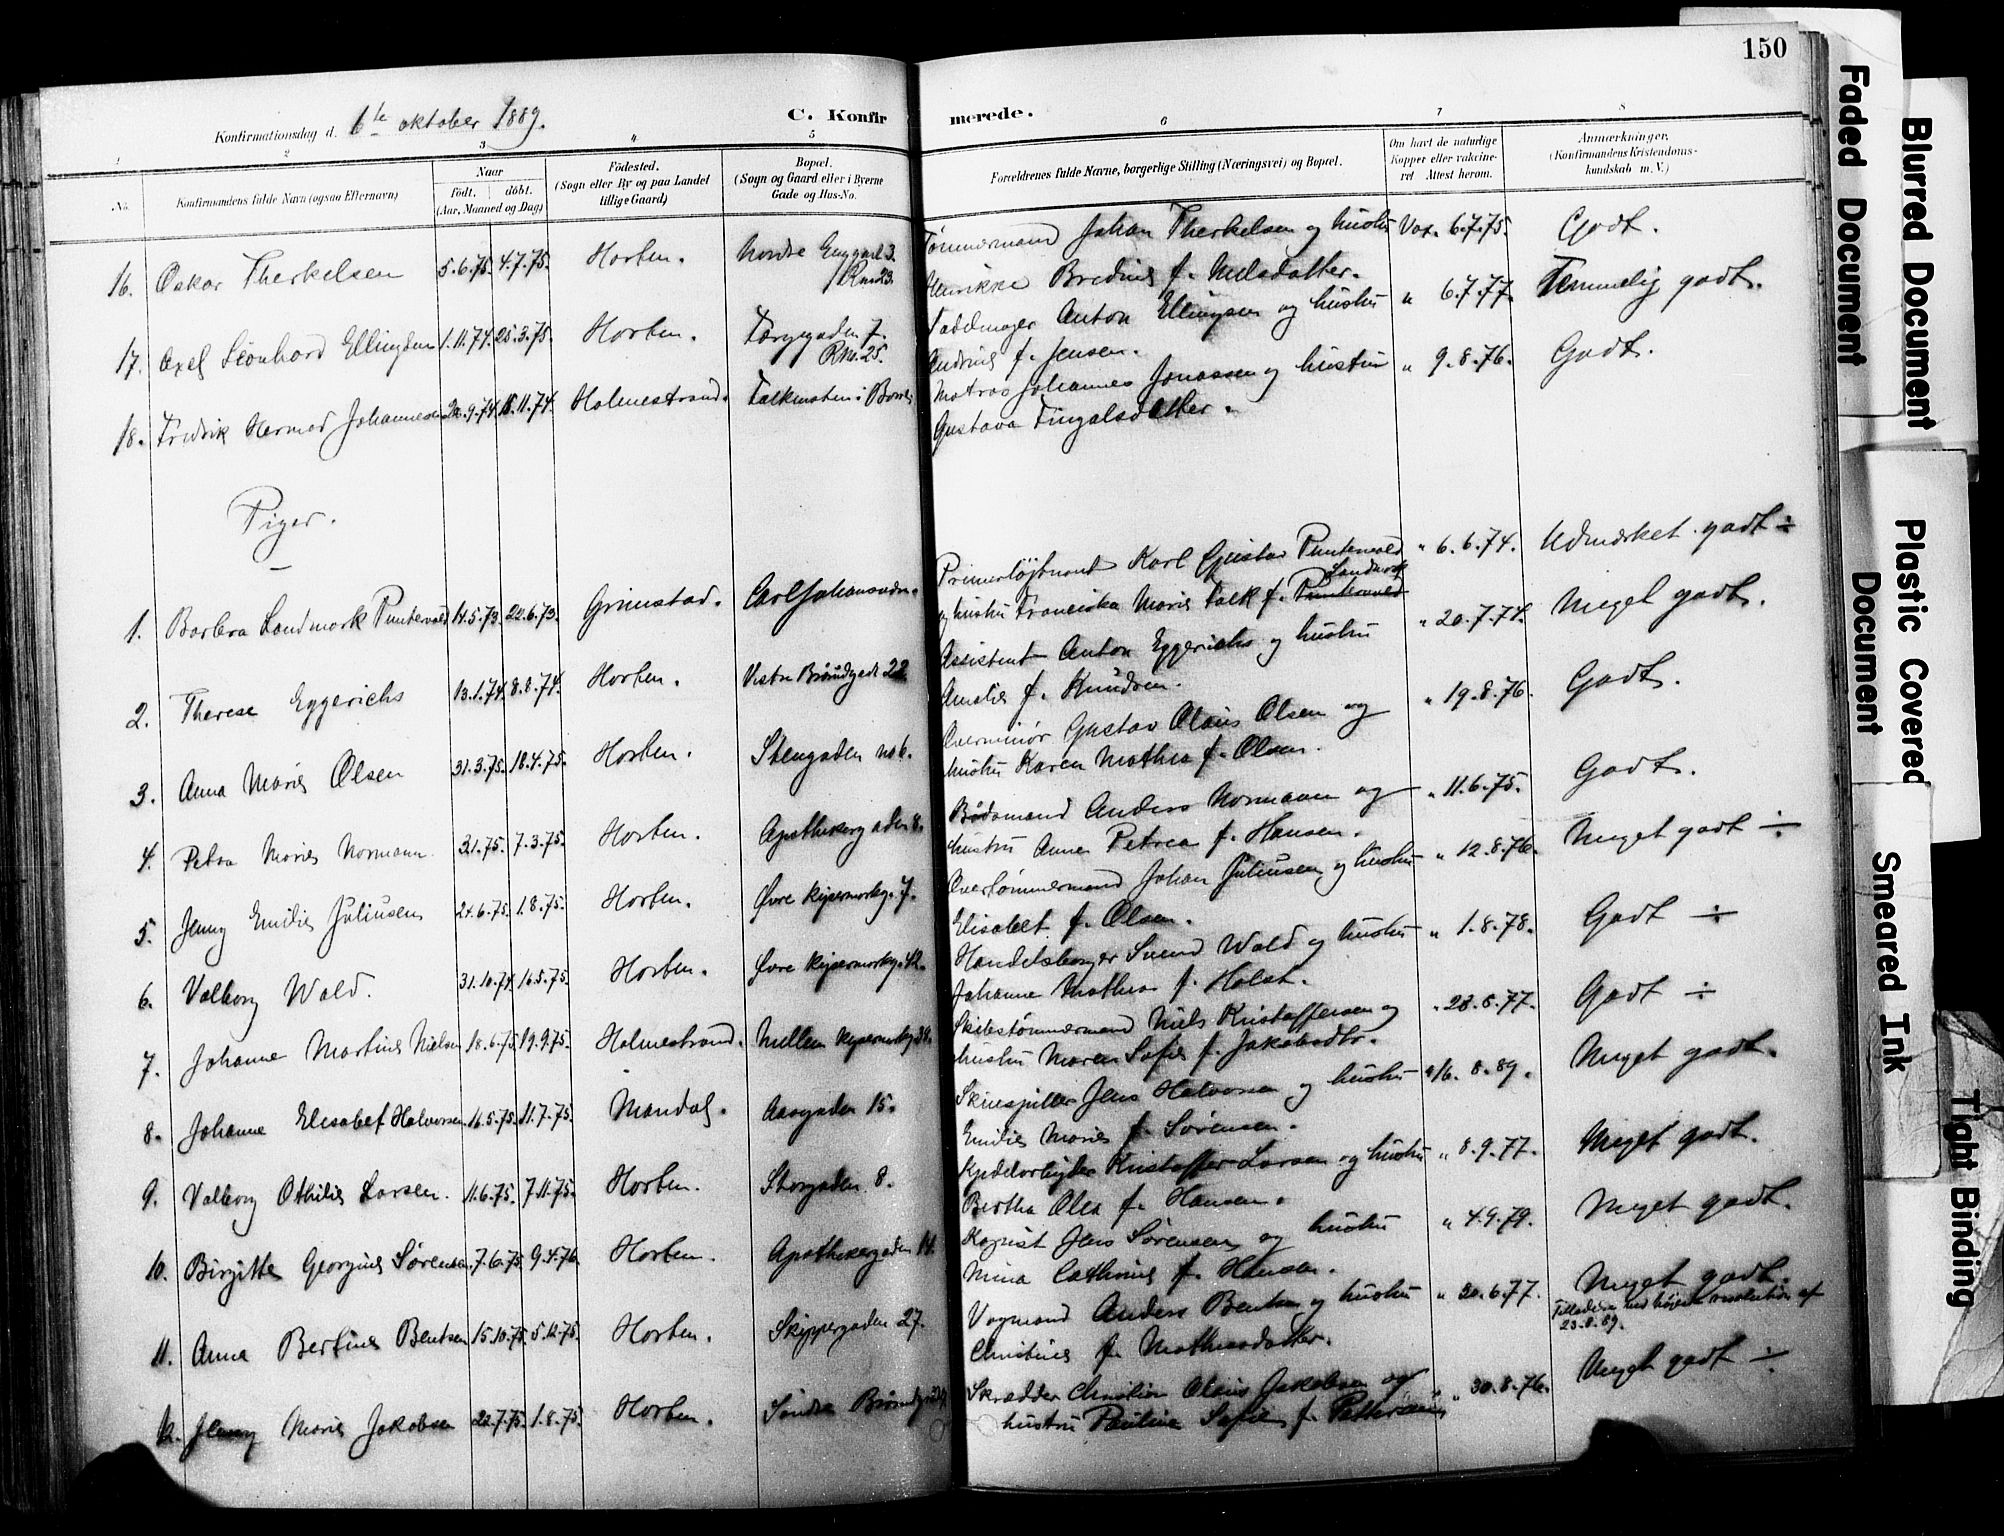 150
Konfirmationsdag d. 6te oktober 1889.
C. Konfirmerede.
1 2 3 4 5 6 7 8
No.
Konfirmandens fulde Navn (ogsaa Efternavn)
Naar
født. døbt.
(Aar, Maaned og Dag)
Fødested.
(Sogn eller By og paa Landet
tillige Gaard)
Bopæl.
(Sogn og Gaard eller i Byerne
Gade og Hus-No.
Forældrenes fulde Navne, borgerlige Stilling (Næringsvei) og Bopæl.
Om havt de naturlige
Kopper eller vakcine-
ret Attest herom.
Anmærkninger.
(Konfirmandens Kristendoms-
kundskab m. V.)
16. Oskar Therkelsen 5.6.75. 4.7.75. Horten. Nordre Enggad 3.
Tømmermand Johan Therkelsen og hustru Vax. 6.7.75. Godt.
Henrikke Bredine f. Nilsdatter.
17. Axel Leonhard Ellingsen 1.11.74. 25.3.75. Horten. Færgegaden 7.
Rno. 25.
Anton Ellingsen og hustru " 6.7.77. Temmelig godt.
Andrine f. Jensen.
18. Fredrik Hermod Johannesen 22.9.74. 15.11.74. Holmestrand. Falkensten i Borre
Matros Johannes Jonassen og hustru " 9.8.76. Godt.
Gustava Fingalsdatter.
Piger.
1. Barbra Landmark Puntervold 14.5.73. 22.6.73. Grimstad. Carl Johansvern.
Premierløjtnant Karl Gustav Puntervold " 6.6.74. Udmærket godt ÷
og hustru Franciska Marie Falk f. Puntervold Landmark
2. Therese Eggerichs 13.1.74. 8.8.74. Horten. Vestre Brårudgade 22
Assistent Anton Eggerichs og hustru " 20.7.74. Meget godt.
Amalie f. Knudsen.
3. Anna Marie Olsen 31.3.75. 18.4.75. Horten. Stengaden no 6.
Overminør Gustav Olaus Olsen og " 19.8.76. Godt.
hustru Karen Mathea f. Olsen.
4. Petra Marie Normann 3.1.75. 7.3.75. Horten. Apothekergaden 8.
Bødsmand Anders Normann og " 11.6.75. Godt.
hustru Anne Petrea f. Hansen.
5. Jenny Emilie Juliusen 24.6.75. 1.8.75. Horten. Øvre Kejsermarkg. 7.
Overtømmermand Johan Juliusen og hustru " 12.8.76. Meget godt ÷
Elisabet f. Olsen.
6. Valborg Wald. 31.10.74. 16.5.75. Horten. Øvre Kejsermarkg. 42.
Handelsborger Svend Wald og hustru " 1.8.78. Godt ÷
Johanne Mathea f. Holst.
7. Johanne Martine Nielsen 18.6.75. 19.9.75. Holmestrand. Mellem Kejsermarkg
Skibstømmermand Niels Kristoffersen og " 28.8.77. Godt ÷
hustru Maren Sofie f. Jakobsdtr.
8. Johanne Elisabet Halvorsen 16.5.75. 11.7.75. Mandal. Aasgaden 15.
Skuespiller Jens Halvorsen og hustru " 16.8.89. Meget godt.
Emilie Marie f. Sørensen.
9. Valborg Othilie Larsen. 11.6.75. 7.11.75. Horten. Storgaden 8.
Kjedelarbejder Kristoffer Larsen og hustru " 8.9.77. Meget godt.
Bertha Olea f. Hansen.
10. Birgitte Georgine Sørensen 7.6.75. 9.4.76. Horten. Apothekergaden 14.
Jens Sørensen og hustru " 4.9.79. Meget godt.
Mina Cathrine f. Hansen.
11. Anna Bertine Bentsen 15.10.75. 5.12.75. Horten. Skippergaden 27.
Vognmand Anders Bentsen og hustru " 20.6.77. Meget godt.
Christine f. Mathisdatter.
Tilladelse ved højeste resolution af
23.8.89.
12. Jenny Marie Jakobsen 22.7.75. 1.8.75. Horten. Søndre
Skrædder Christian Olaus Jakobsen og " 30.8.76. Meget godt ÷
hustru Pauline Sofie f. Pettersen
Faded Document
Blurred Document
Plastic Covered Document
Smeared Ink
Tight Binding